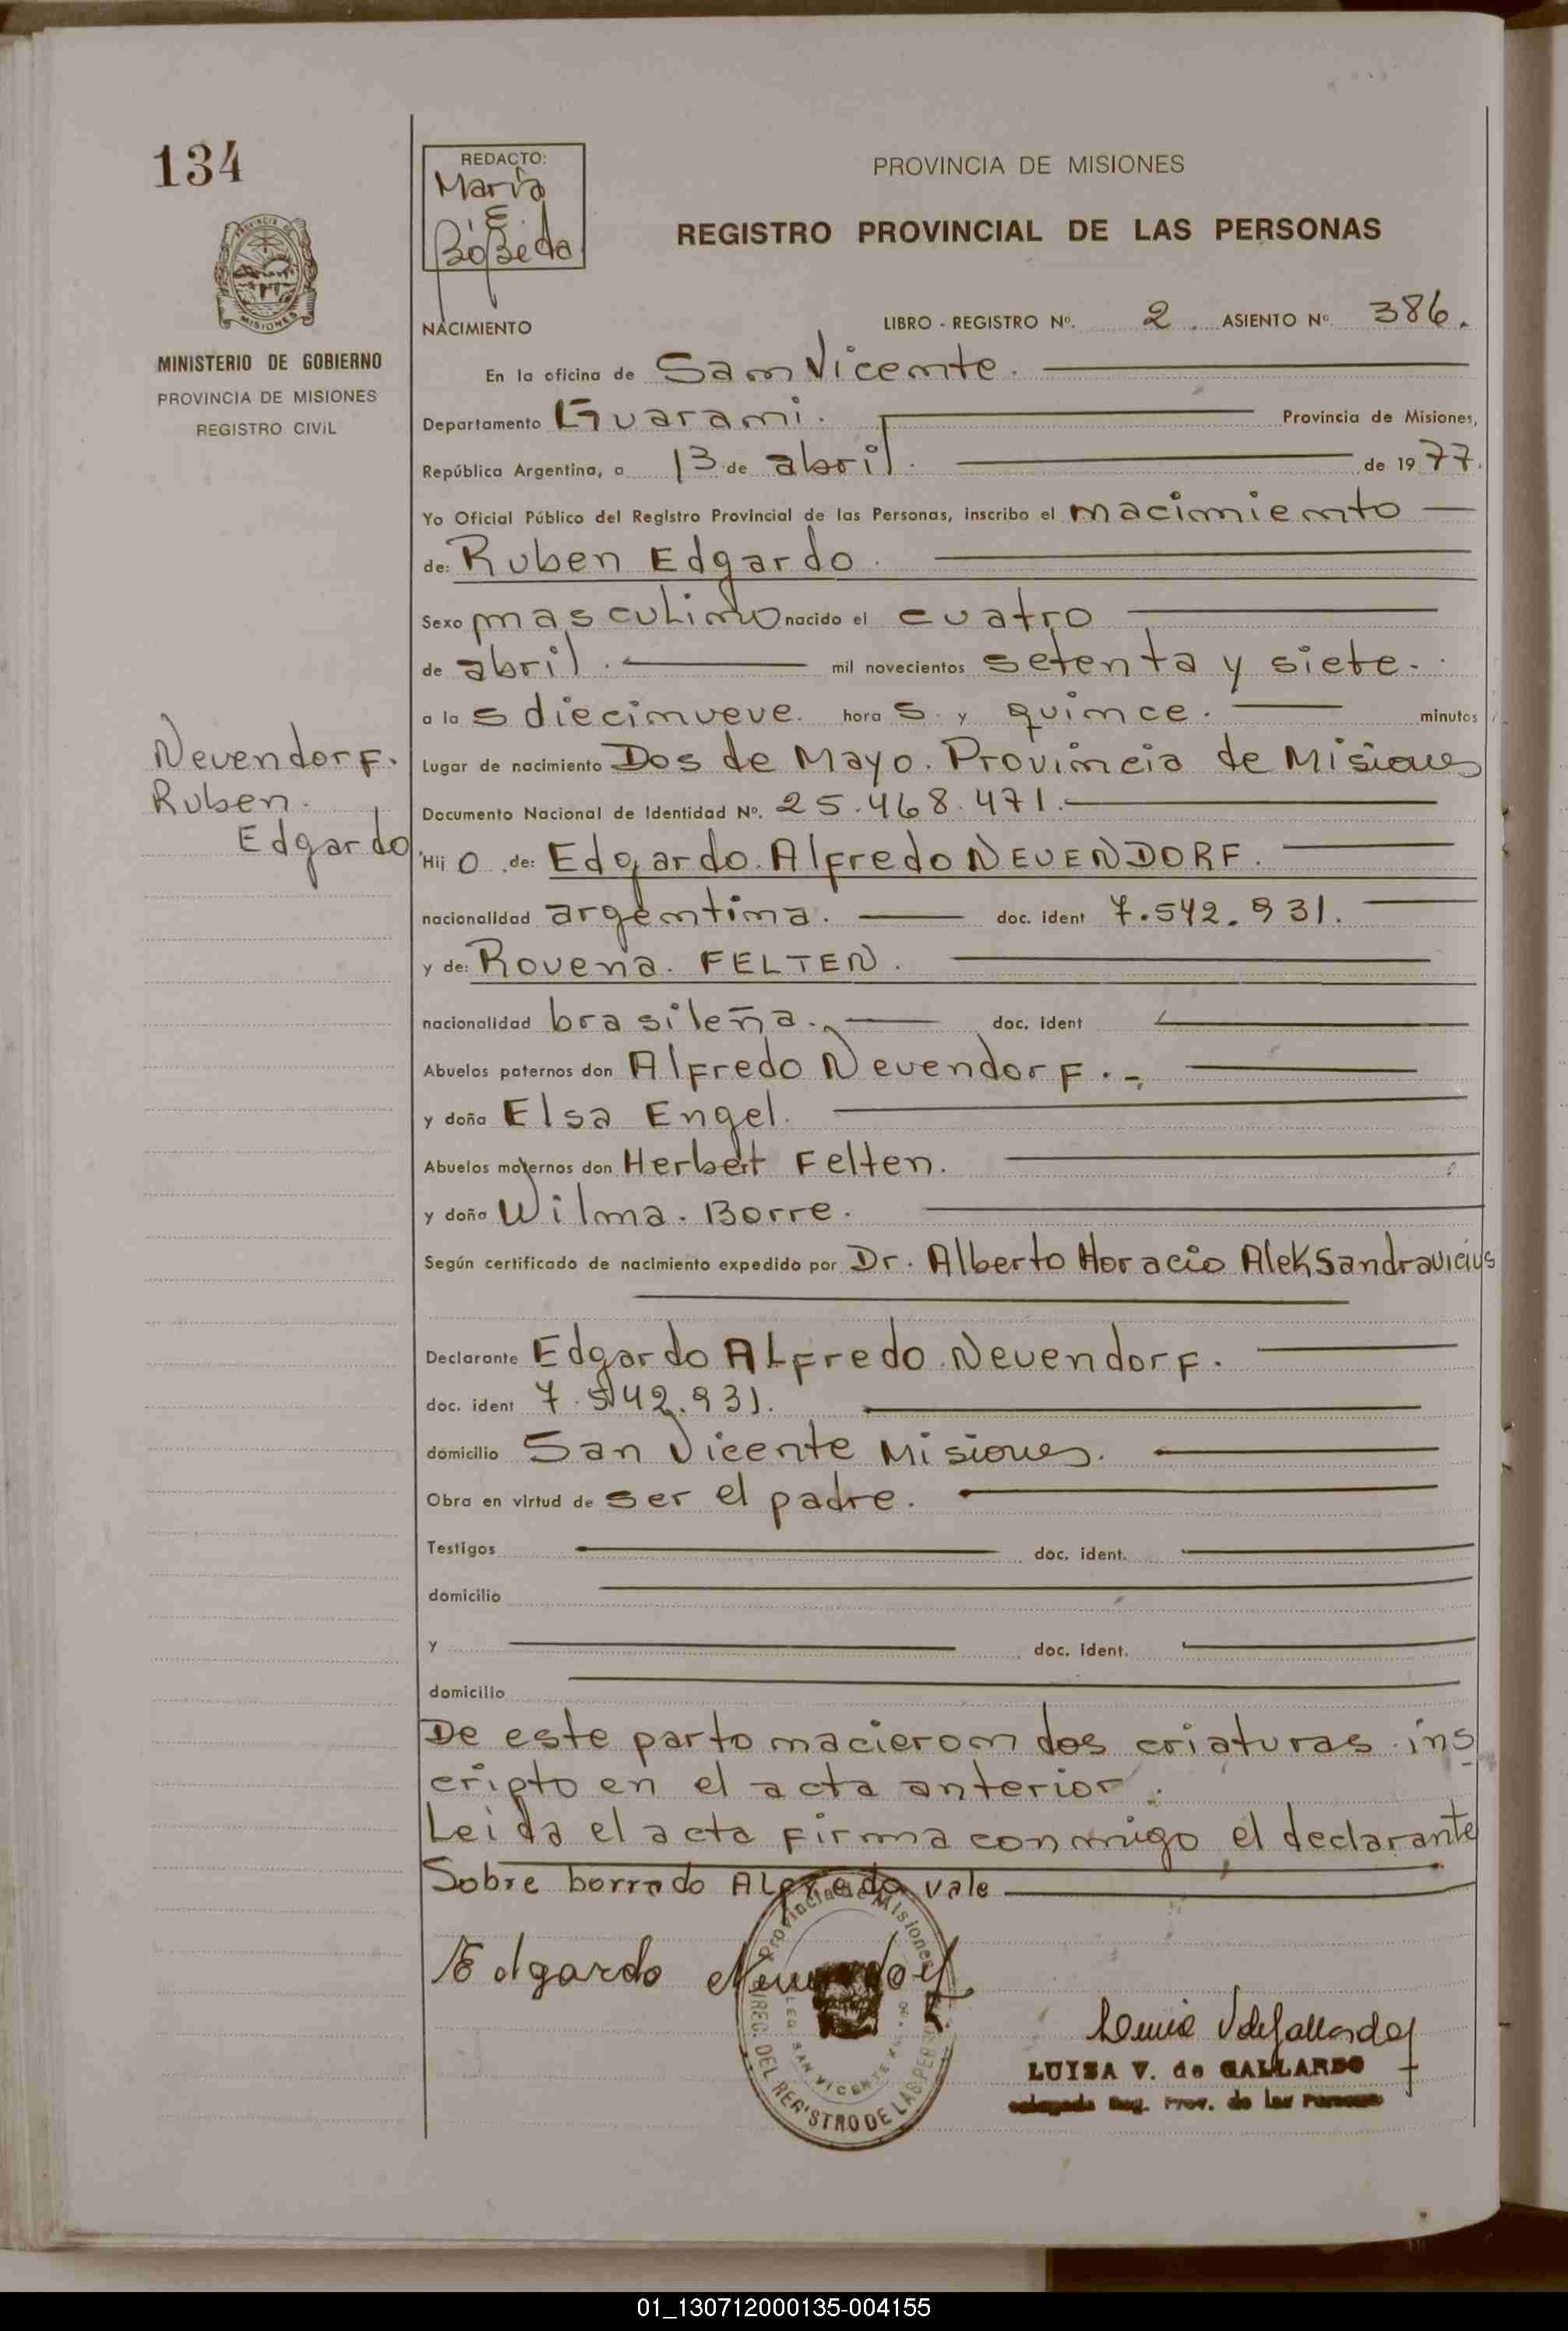 134
REDACTO:
Maria
E.
Bobeda
PROVINCIA DE MISIONES
REGISTRO PROVINCIAL DE LAS PERSONAS
PROVINCIA DE
MISIONES
MINISTERIO DE GOBIERNO
PROVINCIA DE MISIONES
REGISTRO CIVIL
NACIMIENTO LIBRO - REGISTRO Nº. 2. ASIENTO Nº 386.
En la oficina de San Vicente.
Departamento Guarani. Provincia de Misiones,
República Argentina, a 13 de abril. de 1977.
Yo Oficial Público del Registro Provincial de las Personas, inscribo el nacimiento
de: Ruben Edgardo.
Sexo masculino nacido el cuatro
de abril. mil novecientos setenta y siete.
a las diecinueve. horas. y quince. minutos
Neuendorf.
Ruben.
Edgardo
Lugar de nacimiento Dos de Mayo. Provincia de Misiones
Documento Nacional de Identidad Nº. 25.468.471.
Hijo de: Edgardo. Alfredo NEUENDORF.
nacionalidad argentina. doc. ident 7.542.931.
y de: Rovena. FELTEN.
nacionalidad brasileña. doc. ident
Abuelos paternos don Alfredo Neuendorf.
y doña Elsa Engel.
Abuelos maternos don Herbert Felten.
y doña Wilma. Borre.
Según certificado de nacimiento expedido por Dr. Alberto Horacio Aleksandravicius
Declarante Edgardo ALfredo Neuendorf.
doc. ident 7.542.931.
domicilio San Vicente Misiones.
Obra en virtud de ser el padre.
Testigos doc. ident.
domicilio
y doc. ident.
domicilio
De este parto nacieron dos criaturas ins
cripto en el acta anterior.
Leida el acta firma conmigo, el declarante
Sobre borrado ALfredo vale
Edgardo Neuendorf
Provincia de Misiones
DIREC. DEL REGISTRO DE LAS PERS
DELEG. SAN VICENTE
LUISA V. de GALLARDO
Delegada Reg. Prov. de las Personas
01_130712000135-004155